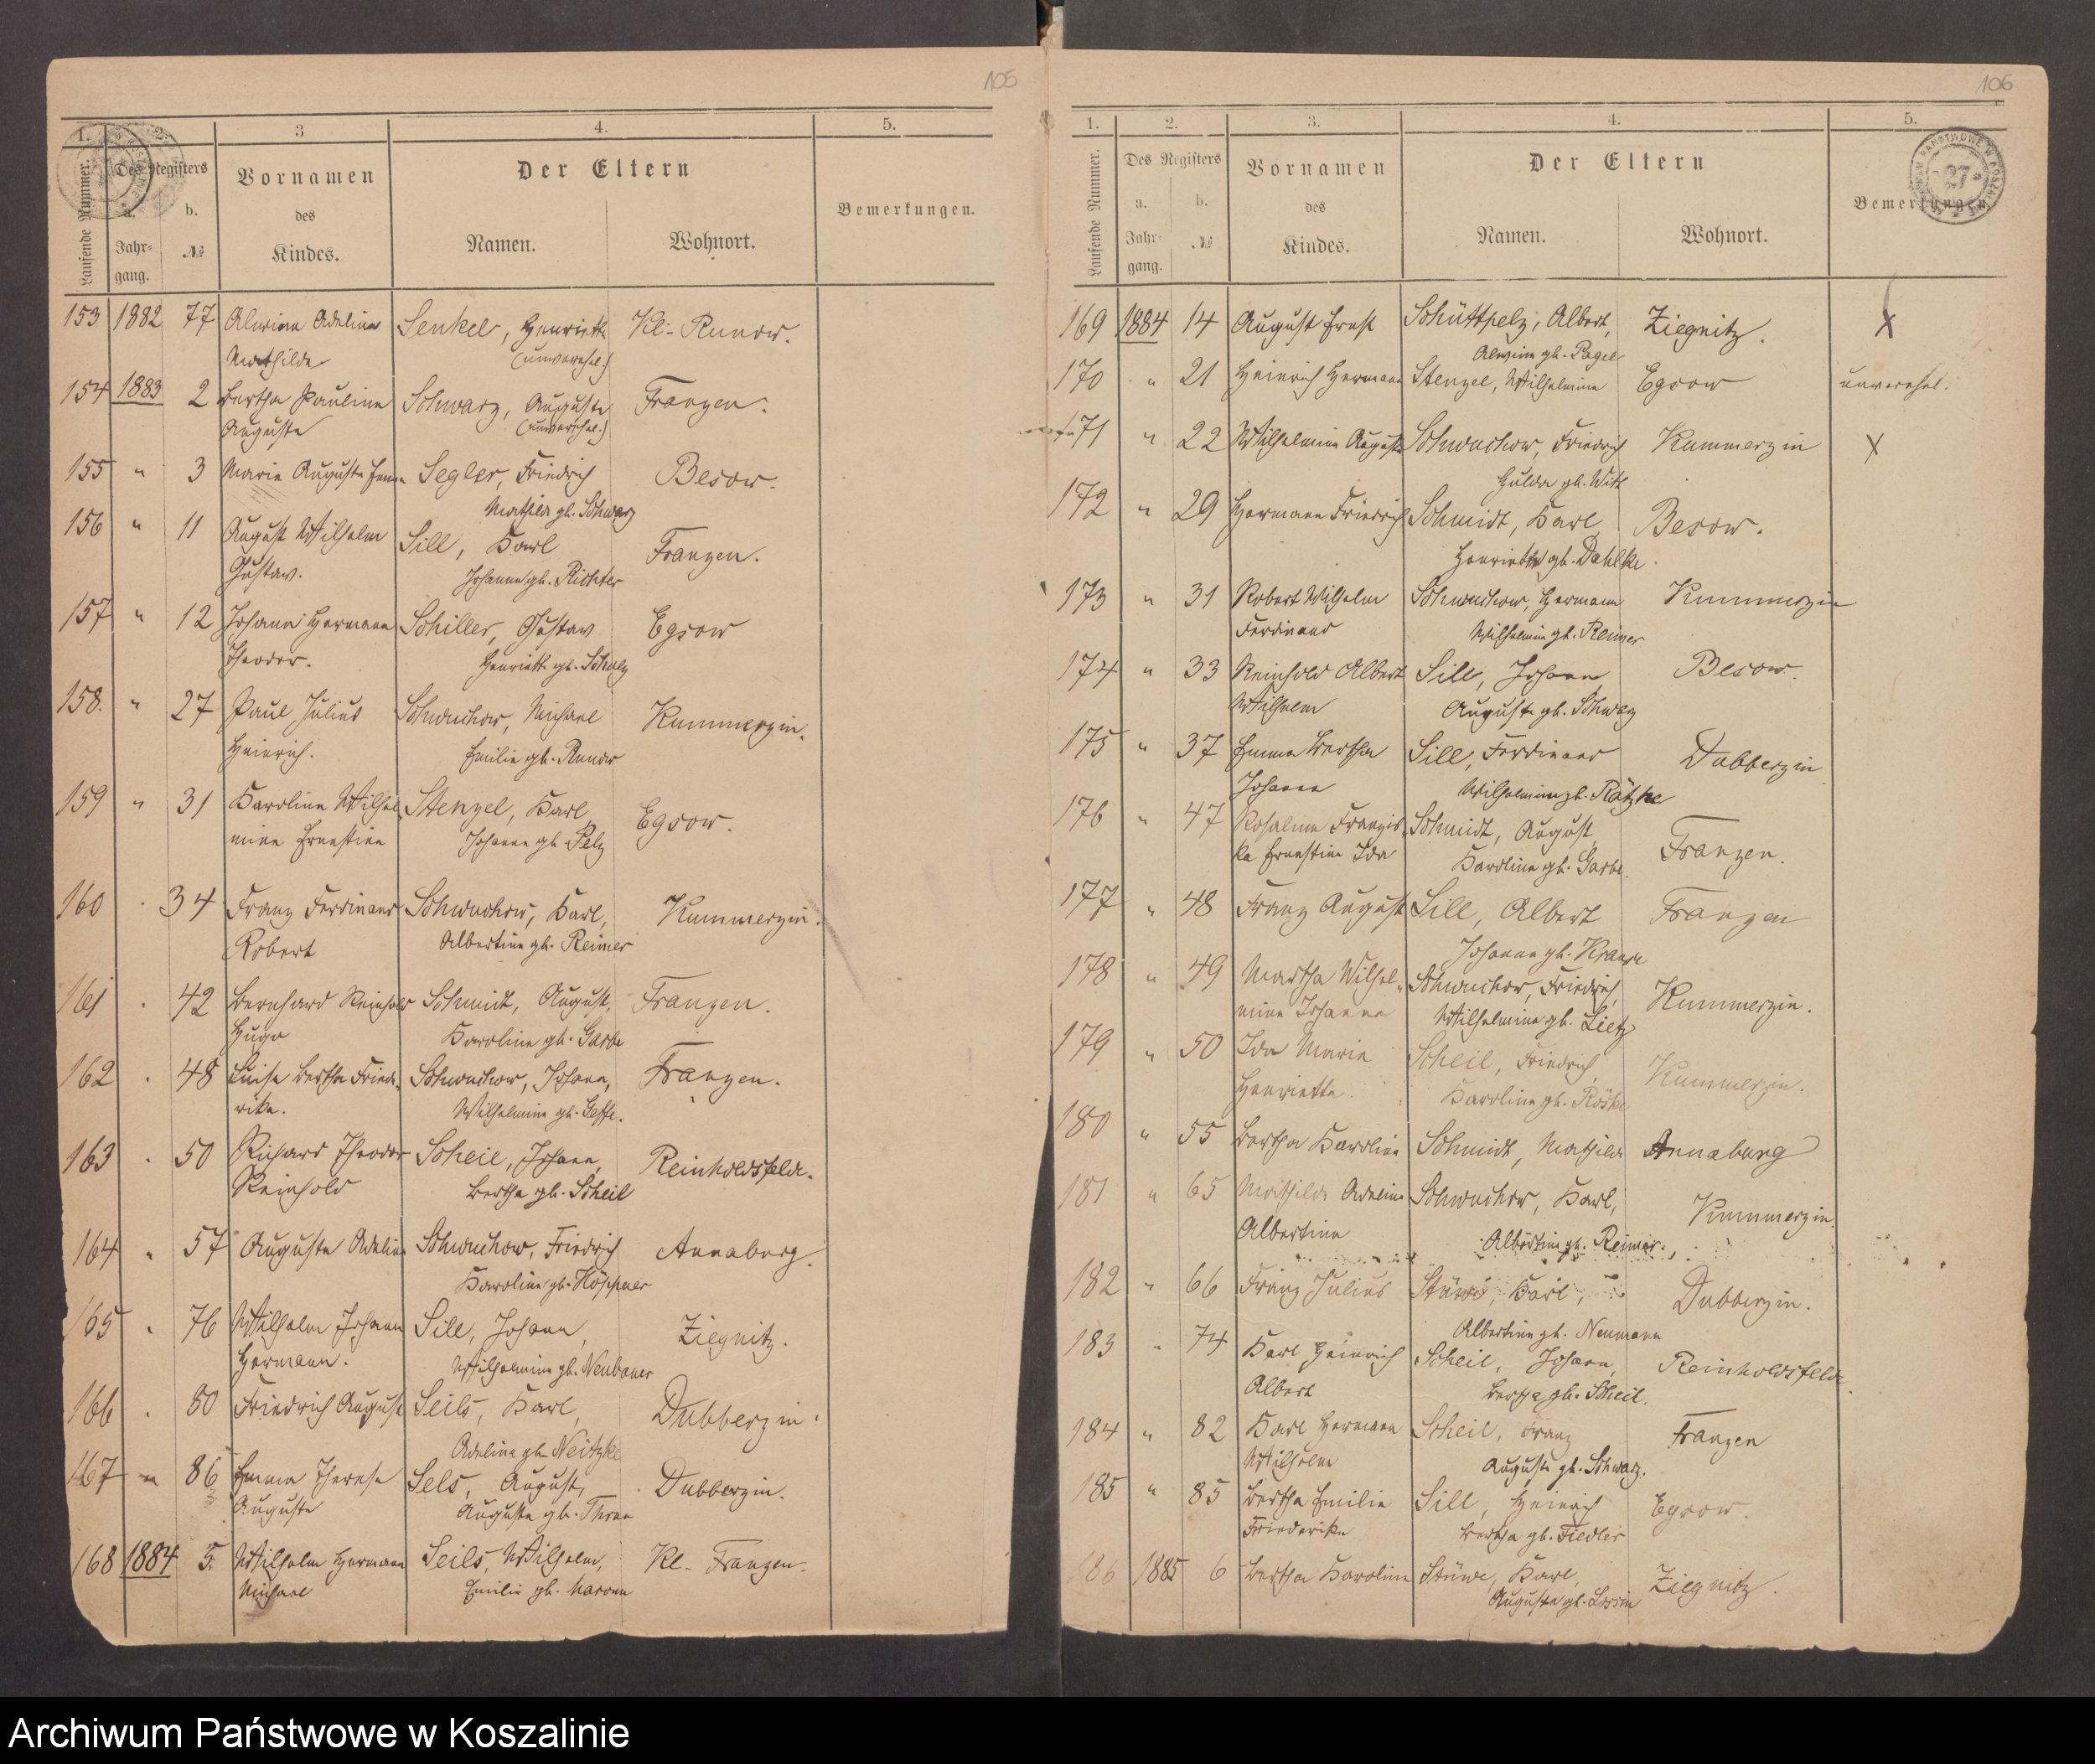 105
1. 2. 3 4. 5.
Laufende Nummer. Des Registers Vornamen des Kindes. Der Eltern Bemerkungen.
a. Jahrgang. b. № Namen. Wohnort.
153 1882 77 Alwine Adeline Senkel, Henriette Kl.- Runow.
Mathilde (unverehel.)
154 1883 2 Bertha Pauline Schwarz, Auguste Franzen.
Auguste (unverehel.)
155 " 3 Marie Auguste Emma Segler, Friedrich Besow.
Mathilde gb. Schwarz
156 " 11 August Wilhelm Sill, Karl Franzen.
Gustav. Johanne gb. Richter
157 " 12 Johann Hermann Schiller, Gustav Egsow
Theodor. Henriette gb. Schulz
158. " 27 Paul Julius Schwuchow, Michael Kummerzin.
Heinrich. Emilie gb. Runow
159 " 31 Karoline Wilhel- Stenzel, Karl, Egsow.
mine Ernestine Johanne gb. Pelz
160 " 34 Franz Ferdinand Schwuchow, Karl, Kummerzin.
Robert Albertine gb. Reimer
161 " 42 Bernhard Reinhold Schmidt, August, Franzen.
Hugo Karoline gb. Garbe
162 " 48 Luise Bertha Friede- Schwuchow, Johann, Franzen.
rike. Wilhelmine gb.
163 " 50 Richard Theodor Scheil, Johann, Reinholdsfelde.
Reinhold Bertha gb. Scheil
164 " 57 Auguste Adeline Schwuchow, Friedrich Annaburg.
Karoline gb. Höppner
165 " 76 Wilhelm Johann Sill, Johann, Ziegnitz.
Hermann. Wilhelmine gb. Neubauer
166 " 80 Friedrich August Seils, Karl, Dubberzin.
Adeline gb. Neitzke
167 " 86 Emma Therese Sels, August, Dubberzin.
Auguste Auguste gb.
168 1884 5. Wilhelm Hermann Seils, Wilhelm, Kl. Franzen.
Michael Emilie gb.
106
1. 2. 3. 4. 5.
Laufende Nummer. Des Registers Vornamen des Kindes. Der Eltern Bemerkungen.
a. Jahrgang. b. № Namen. Wohnort.
27
169 1884 14 August Ernst Schüttpelz, Albert, Ziegnitz. X
Alwine gb. Pagel
170 " 21 Heinrich Hermann Stenzel, Wilhelmine Egsow unverehel.
171 " 22 Wilhelmine Auguste Schwuchow, Friedrich Kummerzin X
Hulda gb. Witt
172 " 29 Hermann Friedrich Schmidt, Karl, Besow.
Henriette gb. Dahlke.
173 " 31 Robert Wilhelm Schwuchow, Hermann Kummerzin
Ferdinand Wilhelmine gb. Reimer
174 " 33 Reinhold Albert Sill, Johann, Besow.
Wilhelm Auguste gb. Schwarz
175 " 37 Emma Bertha Sill, Ferdinand Dubberzin
Johanne Wilhelmine gb. Rätzke
176 " 47 Rosaline Franzis- Schmidt, August, Franzen.
ka Ernestine Ida Karoline gb. Garbe.
177 " 48 Franz August Sill, Albert Franzen
Johanne gb. Krause
178 " 49 Martha Wilhel- Schwuchow, Friedrich, Kummerzin.
mine Johanna Wilhelmine gb. Lietz
179 " 50 Ida Marie Scheil, Friedrich, Kummerzin.
Henriette. Karoline gb. Röske
180 " 55 Bertha Karoline Schmidt, Mathilde Annaburg
181 " 65 Mathilde Adeline Schwuchow, Karl, Kummerzin.
Albertine Albertine gb. Reimer.
182 " 66 Franz Julius Stüwe, Karl, Dubberzin.
Albertine gb. Neumann
183 " 74 Karl Heinrich Scheil, Johann, Reinholdsfelde.
Albert Bertha gb. Scheil.
184 " 82 Karl Hermann Scheil, Franz Franzen
Wilhelm Auguste gb. Schwarz.
185 " 85 Bertha Emilie Sill, Heinrich Egsow.
Friederike Bertha gb. Fiedler
186 1885 6 Bertha Karoline Stüwe, Karl, Ziegnitz.
Auguste gb.
Archiwum Państwowe w Koszalinie